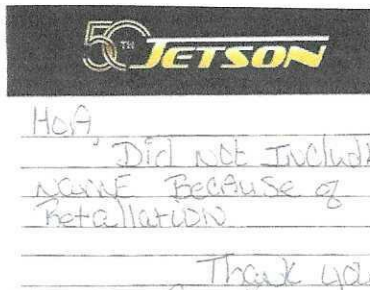 50TH JETSON
HOA
Did not Include
name Because of
Retallation
Thank you